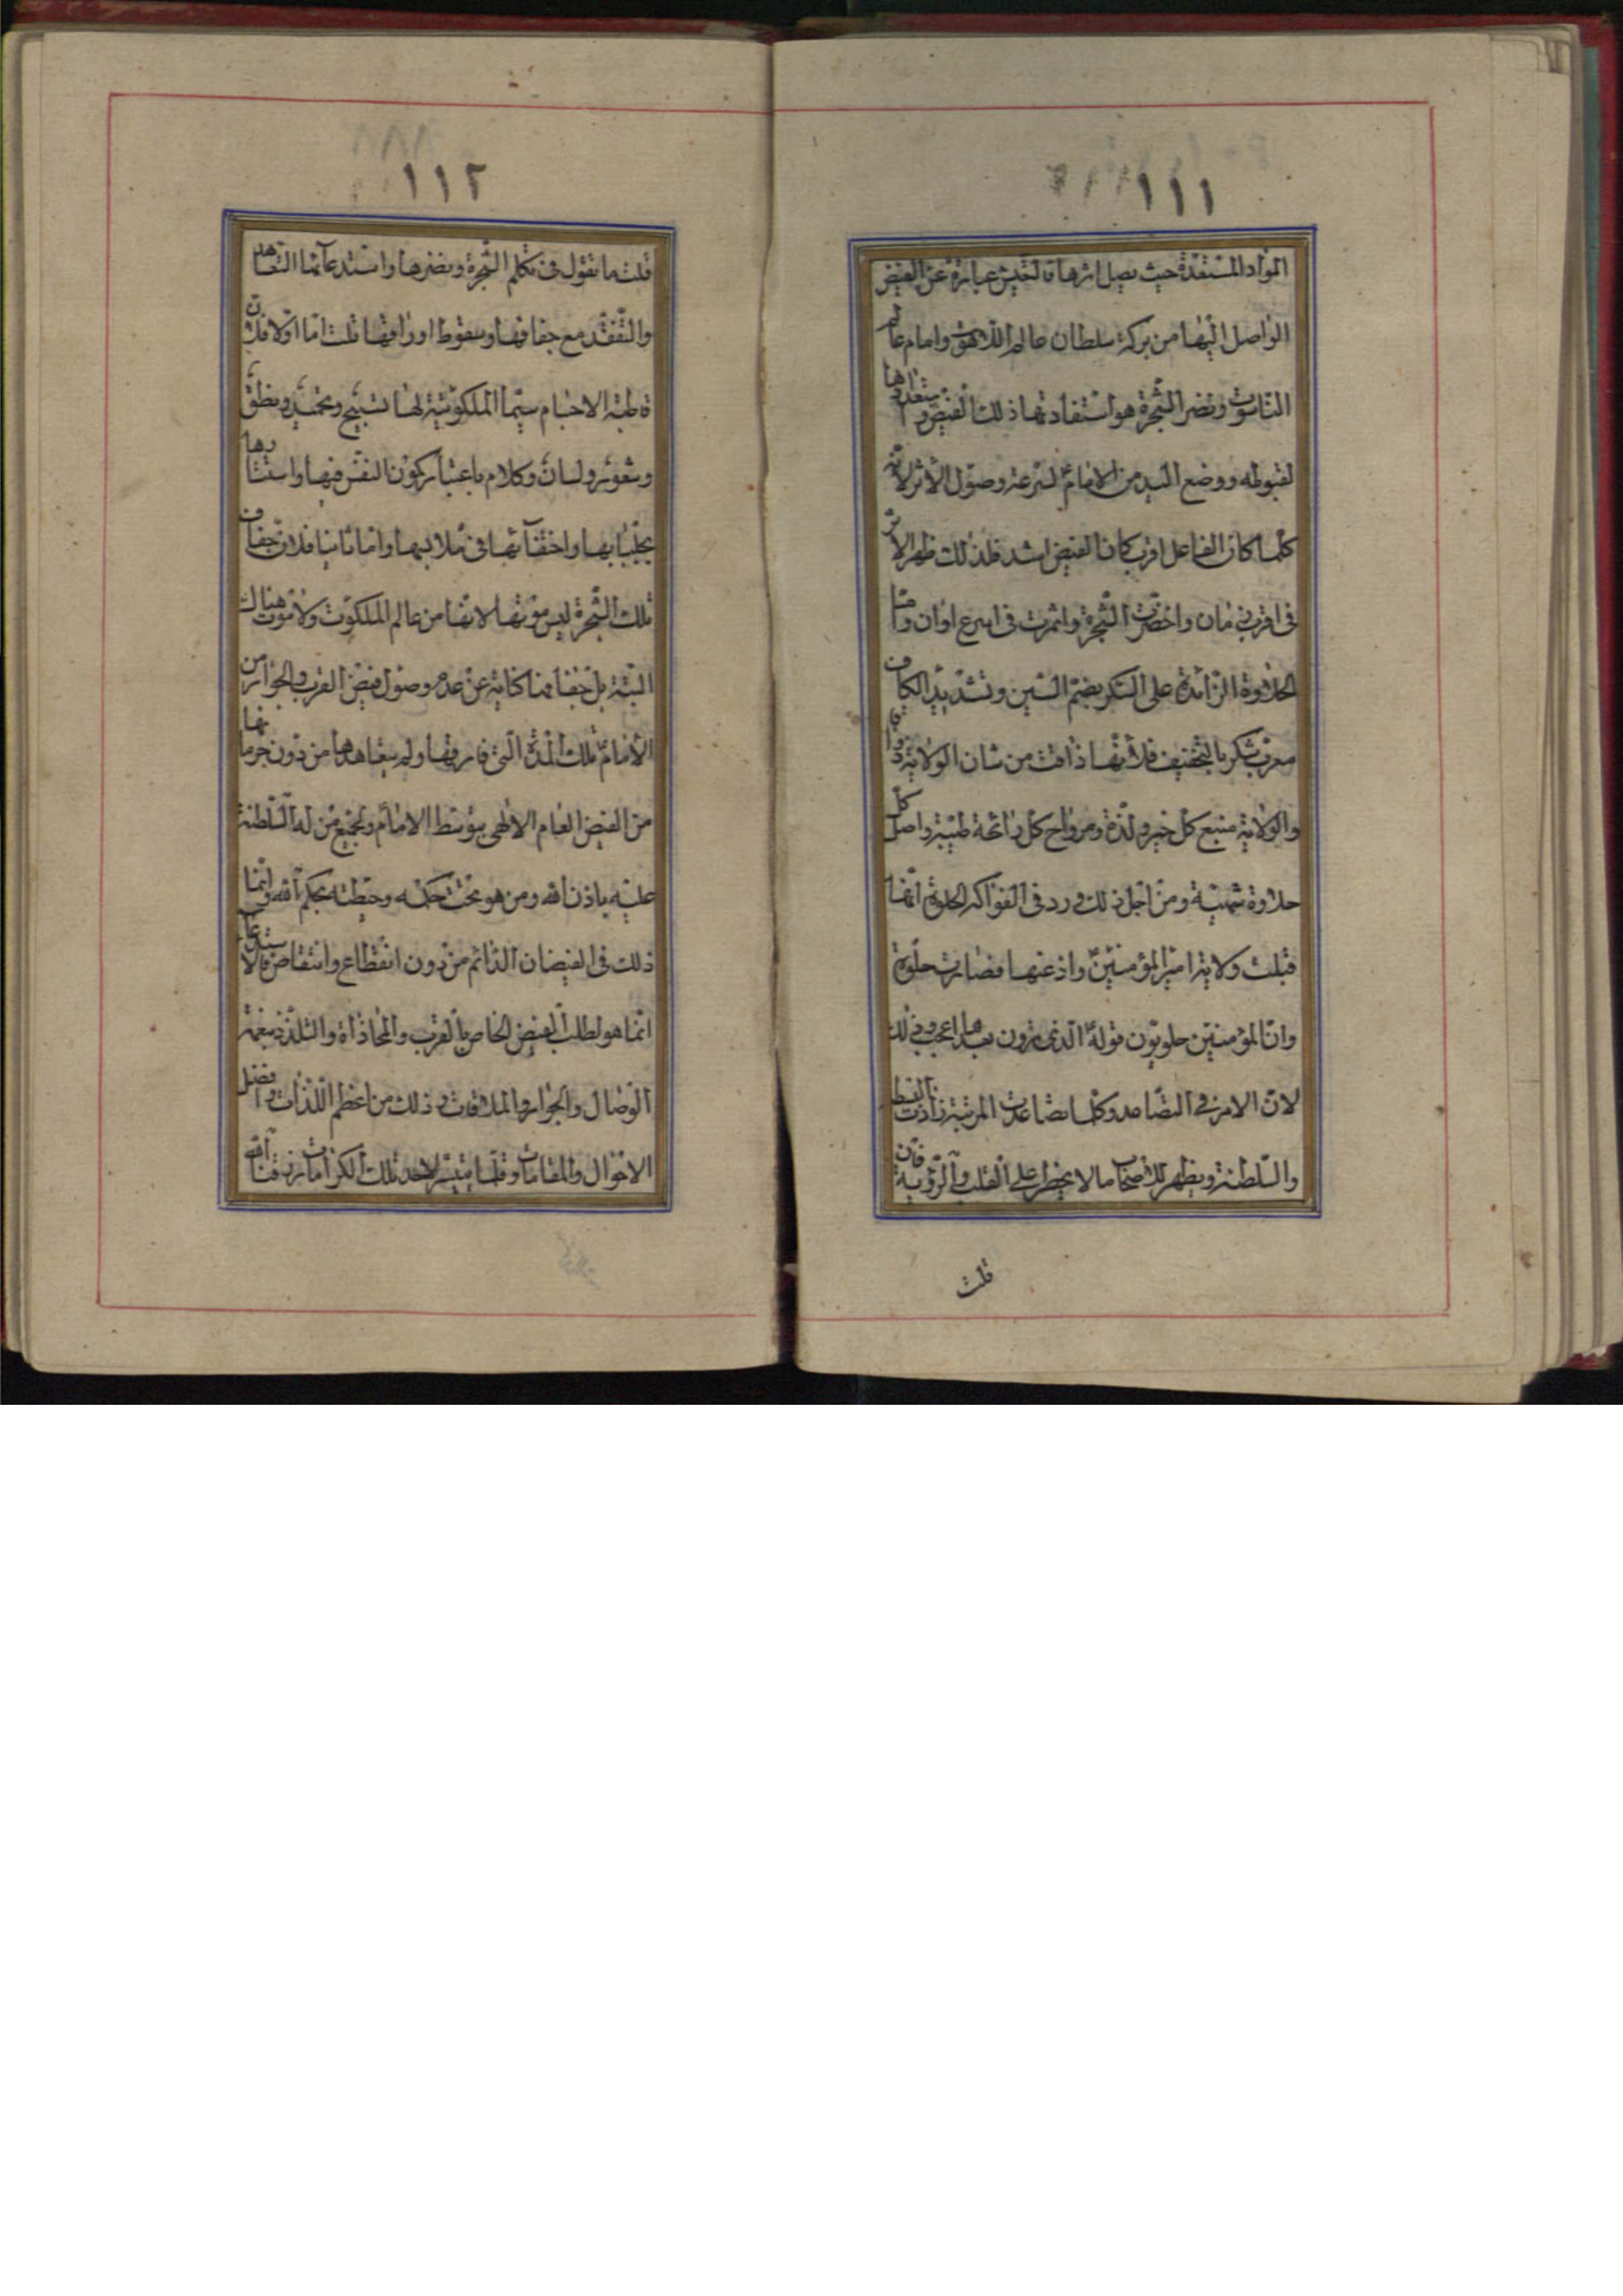 ١١١
المواد المستعدة حيث يصل اثرها فالغيث عبارة عن الفيض
الواصل اليها من بركة سلطان عالم اللاهوت وامام عالم
الناسوت وتضر الشجرة هو استفادتها ذلك الفيض واستعدادها
لقبوله ووضع اليد من الامام لسرعة وصول الأثر لانه
كلما كان الفاعل اقرب كان الفيض اشد فلذلك ظهر الاثر
فى اقرب زمان واخضرت الشجرة واثمرت فى اسرع اوان وامّا
الحلاوة الزائدة على السكر بضم السين وتشديد الكاف
معرب شكر بالتخفيف فلانها ذاقت من شان الولاية ذواقا
والولاية منبع كل خير ولذة ومرواح كل رائحة طيبة واصل كل
حلاوة شهية ومن اجل ذلك ورد فى الفواكه الحلوة انها
قبلت ولاية امير المؤمنين واذعنها فصارت حلوة
وان المؤمنين حلويون قوله الذى ترون بعدها اعجب وذلك
لان الامر فى التصاعد وكلما تصاعدت المرتبة زادت البسط
والسلطنة ويظهر للاصحاب ما لا يخطر على القلب والرؤية فان
قلت
١١٢
قلت ما تقول فى تكلم الشجرة وتضرها واستدعائها التعاهد
والتفقد مع جفافها وسقوط اوراقها قلت امّا اوّلا فلان
قاطبة الاجسام سيّما الملكوتية لها تسبيح وتحميد ونطق
وشعور ولسان وكلام باعتبار كون النفس فيها واستتارها
بجلبابها واختفائها فى ملابسها وامّا ثانيا فلان جفاف
تلك الشجرة ليس موتها لانها من عالم الملكوت ولا موت هناك
البتة بل جفافها كناية عن عدم وصول فيض القرب والجوار من
الأمام تلك المدة التى فارقها ولم يتعاهدها من دون حرمانها
من الفيض العام الالهى بتوسط الامام ولجميع من له السلطنة
عليه باذن الله ومن هو تحت حكمه وحيطته بحكم الله وانّما
ذلك فى الفيضان الدائم من دون انقطاع وانتقاص فالاستدعاء
انما هو لطلب الفيض الخاص بالقرب والمحاذاة والتلذذ بنعمة
الوصال والجوار والملاقات وذلك من اعظم اللذات وافضل
الاحوال والمقامات وقلّما يتيسر لاحد تلك الكرامات رزقنا الله